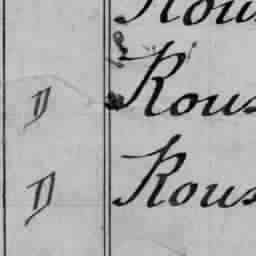 Rous
D Rous
D Rous